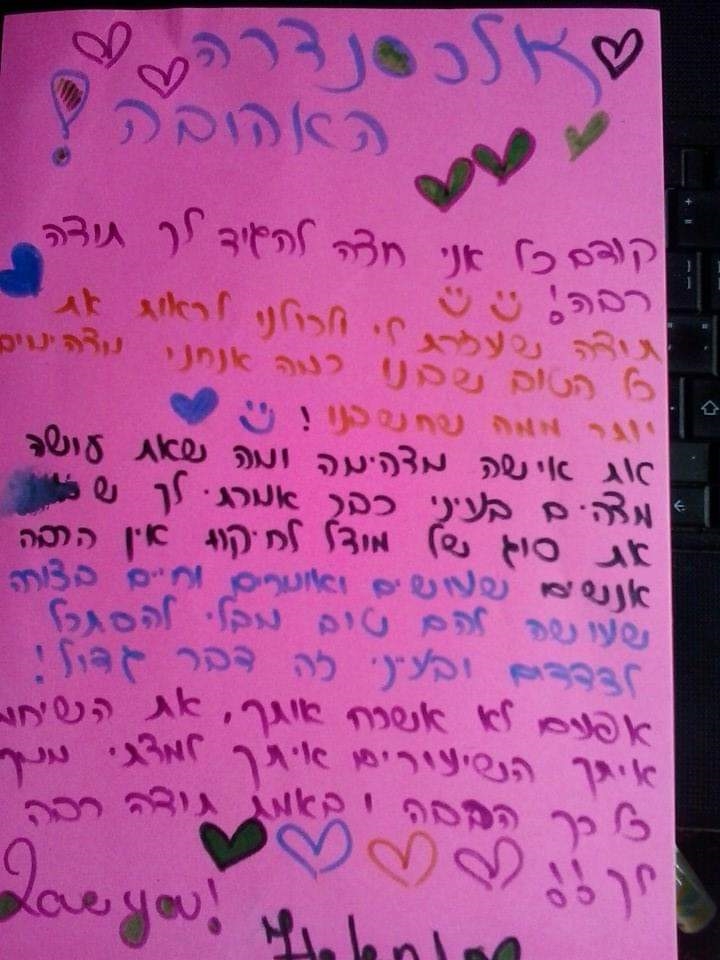 אלכסנדרה
האהובה!
קודם כל אני רוצה להגיד לך תודה
רבה!
תודה שעזרת לי ולכולנו לראות את
כל הטוב שבנו וכמה אנחנו מדהימים
יותר ממה שחשבנו!
את אישה מדהימה ומה שאת עושה
מדהים בעיני כבר אמרתי לך ש
את סוג של מודל לחיקוי אין הרבה
אנשים שעושים ואומרים וחיים בצורה
שעושה להם טוב מבלי להסתכל
לצדדים ובעיני זה דבר גדול!
אפעם לא אשכח אותך, את השיחות
איתך השיעורים איתך למדתי ממך
כל כך הרבה ובאמת תודה רבה
לך!!
Love you!